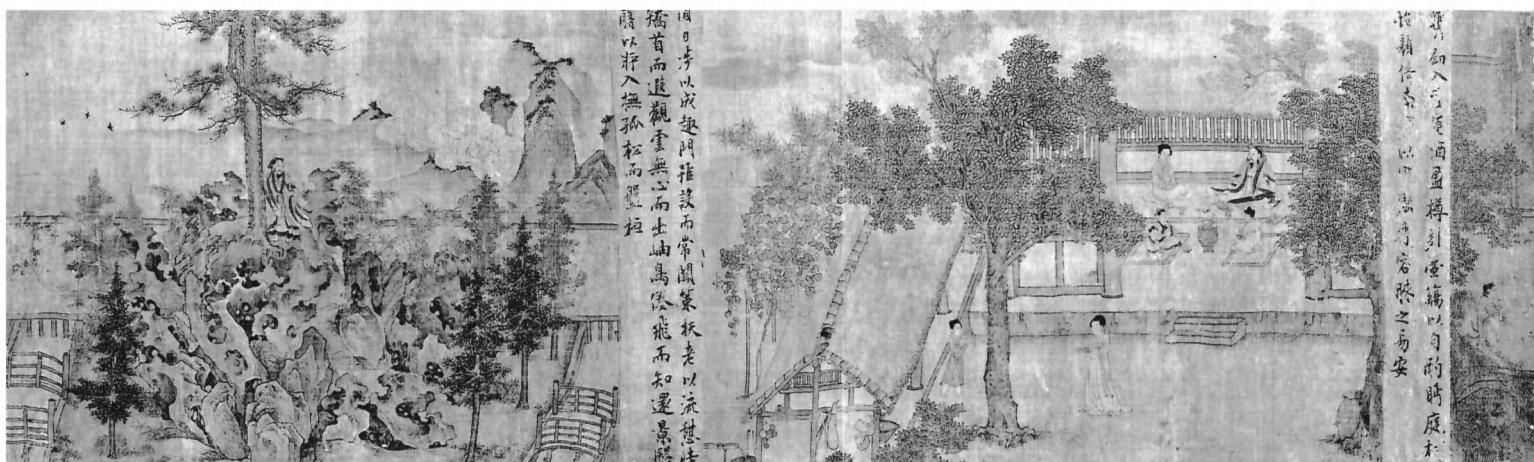 幼入室有酒盈樽引壺觴以自酌眄庭柯
怡顏倚南以寄傲審容膝之易安
園日涉以成趣門雖設而常關策扶老以流憩時
矯首而遐觀雲無心而出岫鳥倦飛而知還景翳
翳以將入撫孤松而盤桓